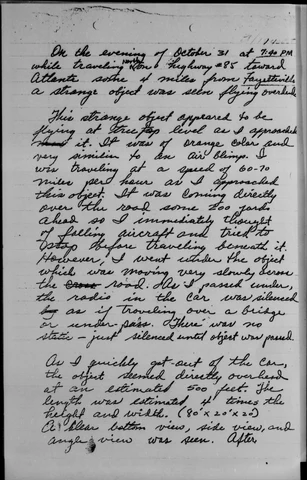 On the evening of October 31 at 7:40 PM
while traveling north on highway #85 toward
Atlanta some 4 miles from Fayetteville
a strange object was seen flying overhead.
This strange object appeared to be
flying at tree top level as I approached
it. It was of orange color and
very similiar to an air blimp. I
was traveling at a speed of 60-70
miles per hour as I approached
this object. It was coming directly
over the road some 200 yards
ahead so I immediately thought
of falling aircraft and tried to
stop before traveling beneath it.
However, I went under the object
which was moving very slowly across
the road. As I passed under,
the radio in the car was silenced
as if traveling over a bridge
or under pass. There was no
static - just silenced until object was passed.
As I quickly got out of the car,
the object seemed directly overhead
at an estimated 500 feet. The
length was estimated 4 times the
height and width. (80' x 20' x 20')
A clear bottom view, side view, and
angle view was seen. After